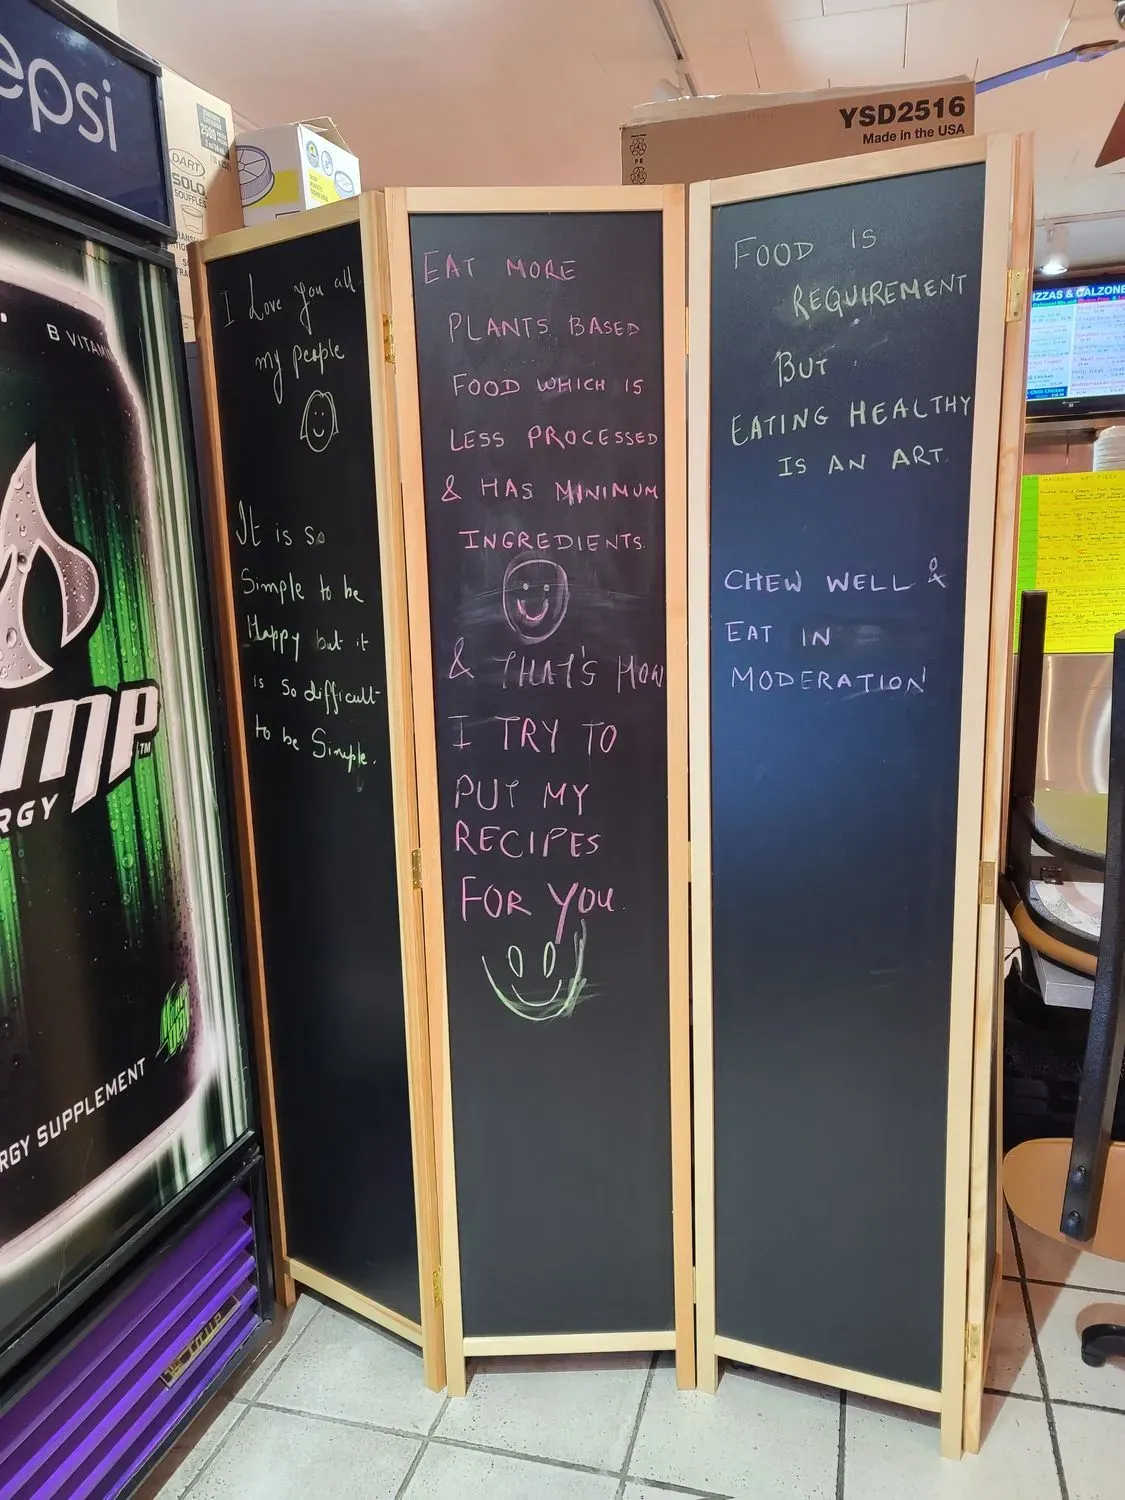 epsi
B VITAM
mp
TM
RGY
RGY SUPPLEMENT
2500
DART
SOLO
SOUFFLES
YSD2516
Made in the USA
I Love you all
my people
It is so
Simple to be
Happy but it
is so difficult
to be Simple.
EAT MORE
PLANTS BASED
FOOD WHICH IS
LESS PROCESSED
& HAS MINIMUM
INGREDIENTS.
& THAT'S HOW
I TRY TO
PUT MY
RECIPES
FOR YOU.
FOOD IS
REQUIREMENT
BUT
EATING HEALTHY
IS AN ART.
CHEW WELL &
EAT IN
MODERATION
IZZAS & CALZONE